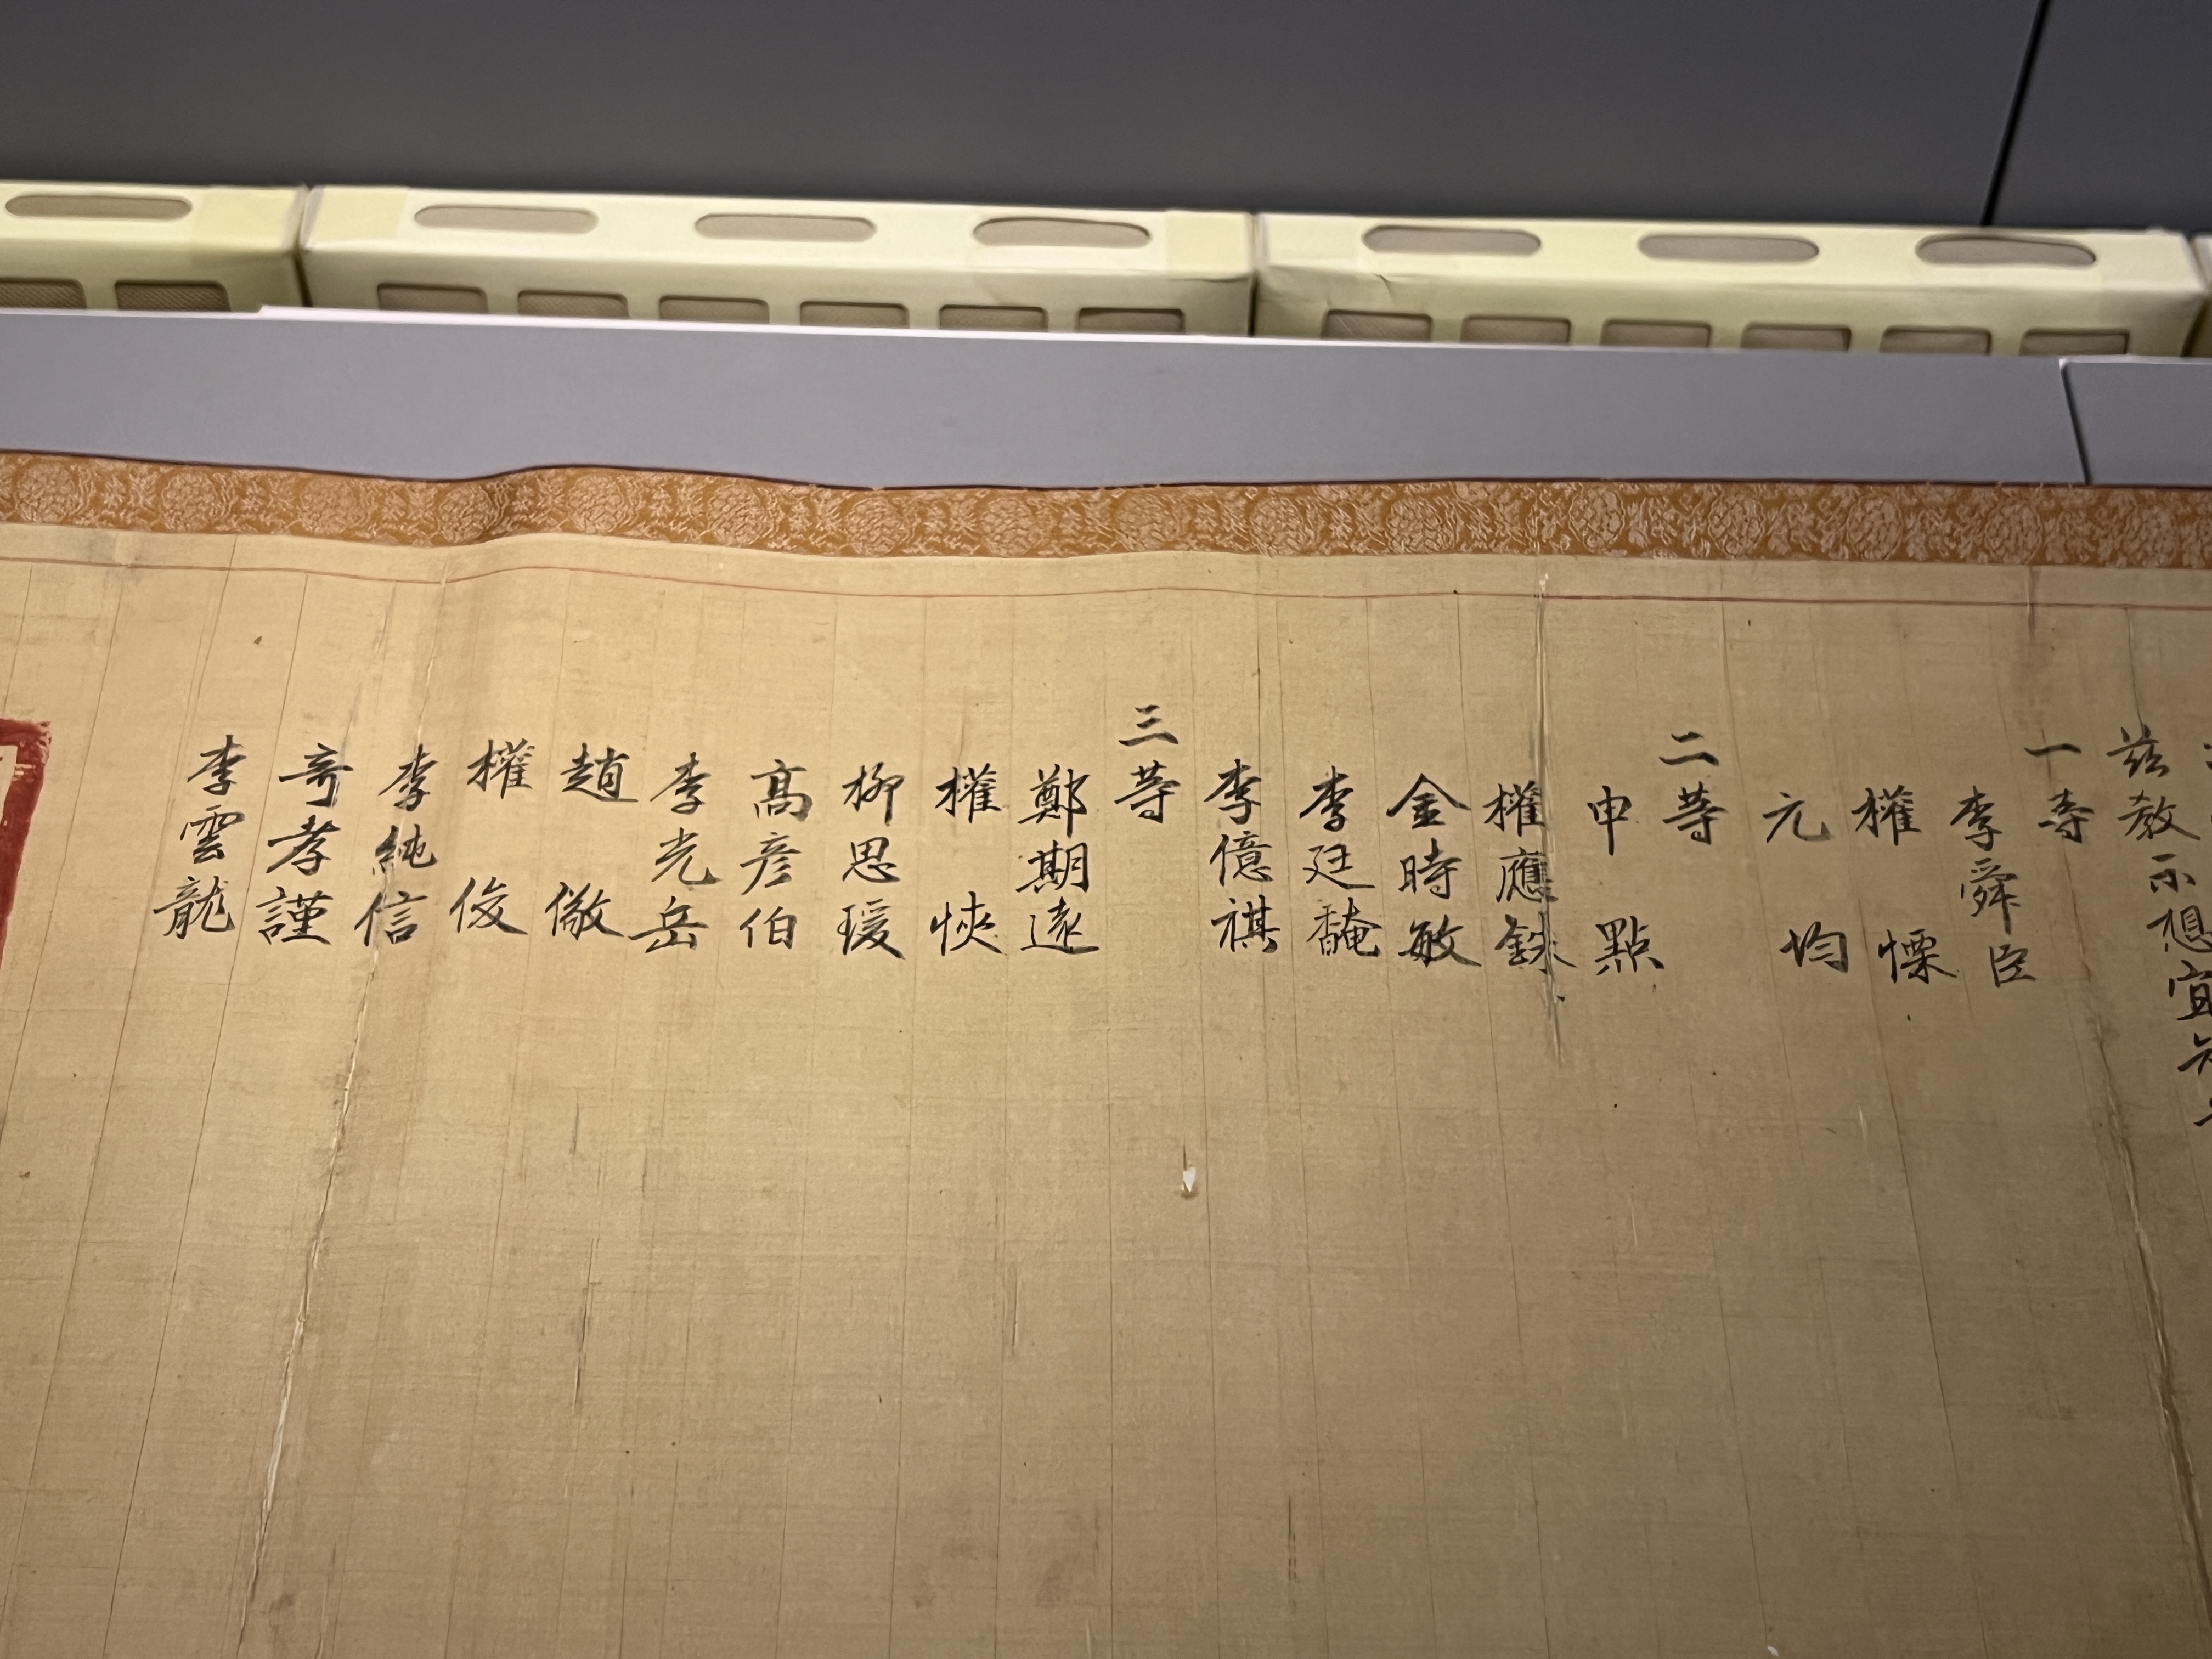 茲教示想宜知
一等
李舜臣
權慄
元均
二等
申點
權應銖
金時敏
李廷馣
李億祺
三等
鄭期遠
權悏
柳思瑗
高彦伯
李光岳
趙儆
權俊
李純信
奇孝謹
李雲龍